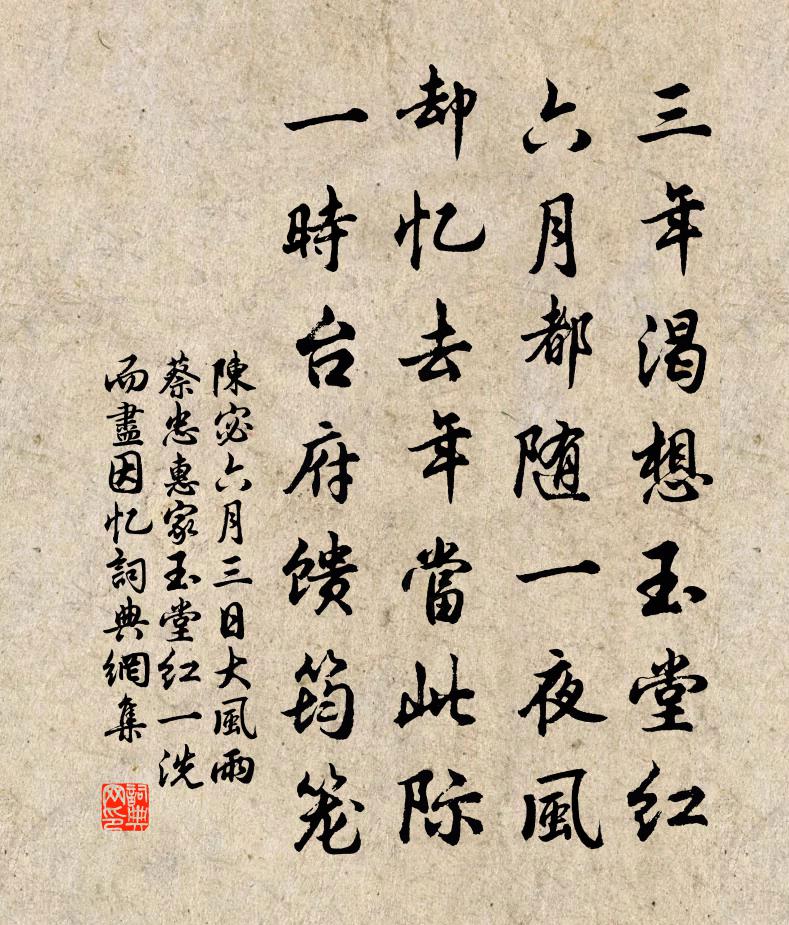 三年渴想玉堂红
六月都随一夜風
却忆去年當此际
一時台府馈筠笼
陳宓六月三日大風雨
蔡忠惠家玉堂红一洗
而盡因忆詞典網集
詞典网印